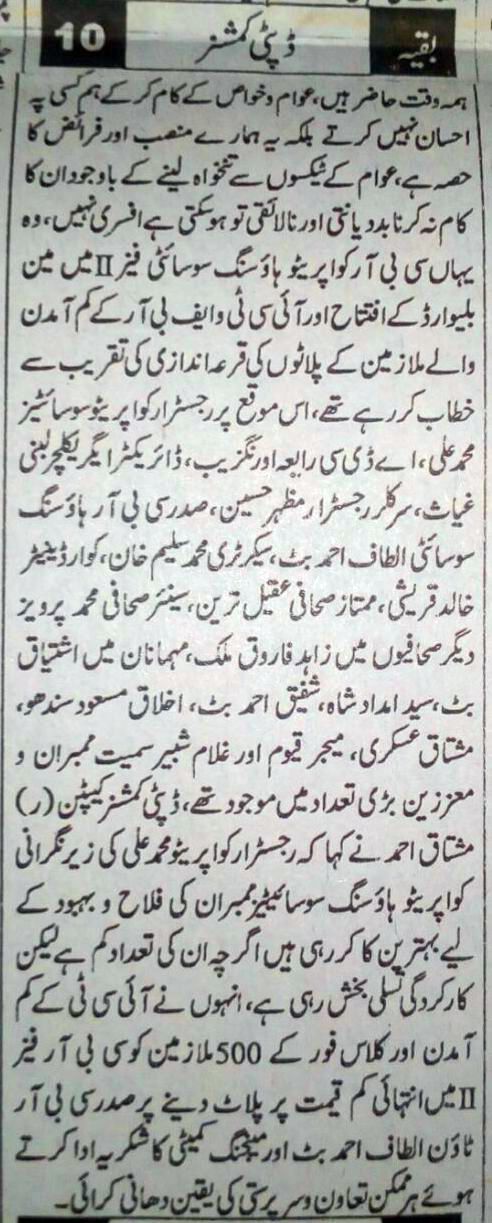 بقیہ ڈپٹی کمشنر 10
ہمہ وقت حاضر ہیں، عوام و خواص کے کام کر کے ہم کسی پہ
احسان نہیں کرتے بلکہ یہ ہمارے منصب اور فرائض کا
حصہ ہے، عوام کے ٹیکسوں سے تنخواہ لینے کے باوجود ان کا
کام نہ کرنا بددیانتی اور نالائقی تو ہوسکتی ہے افسری نہیں، وہ
یہاں سی بی آر کواپریٹو ہاؤسنگ سوسائٹی فیز II میں مین
بلیوارڈ کے افتتاح اور آئی سی ٹی و ایف بی آر کے کم آمدن
والے ملازمین کے پلاٹوں کی قرعہ اندازی کی تقریب سے
خطاب کر رہے تھے، اس موقع پر رجسٹرار کواپریٹو سوسائٹیز
محمد علی، اے ڈی سی رابعہ اورنگزیب، ڈائریکٹر ایگریکلچر لبنی
غیاث، سرکلر رجسٹرار مظہر حسین، صدر سی بی آر ہاؤسنگ
سوسائٹی الطاف احمد بٹ، سیکرٹری محمد سلیم خان، کوارڈینیٹر
خالد قریشی، ممتاز صحافی عقیل ترین، سینئر صحافی محمد پرویز
دیگر صحافیوں میں زاہد فاروق ملک، مہمانان میں اشتیاق
بٹ، سید امداد شاہ، شفیق احمد بٹ، اخلاق مسعود سندھو،
مشتاق عسکری، میجر قیوم اور غلام شبیر سمیت ممبران و
معززین بڑی تعداد میں موجود تھے، ڈپٹی کمشنر کیپٹن (ر)
مشتاق احمد نے کہا کہ رجسٹرار کواپریٹو محمد علی کی زیر نگرانی
کواپریٹو ہاؤسنگ سوسائیٹیز ممبران کی فلاح و بہبود کے
لیے بہترین کا کر رہی ہیں اگرچہ ان کی تعداد کم ہے لیکن
کارکردگی تسلی بخش رہی ہے، انہوں نے آئی سی ٹی کے کم
آمدن اور کلاس فور کے 500 ملازمین کو سی بی آر فیز
II میں انتہائی کم قیمت پر پلاٹ دینے پر صدر سی بی آر
ٹاؤن الطاف احمد بٹ اور مینجنگ کمیٹی کا شکریہ ادا کرتے
ہوئے ہر ممکن تعاون و سرپرستی کی یقین دھانی کرائی۔